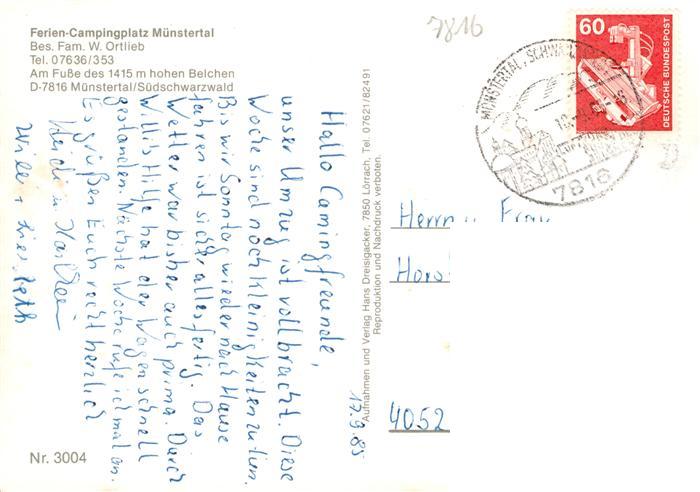 Ferien-Campingplatz Münstertal
Bes. Fam. W. Ortlieb
Tel. 07636/353
Am Fuße des 1415 m hohen Belchen
D-7816 Münstertal/Südschwarzwald
7816
60
DEUTSCHE BUNDESPOST
MÜNSTERTAL, SCHWARZWALD
7816
17.9.85
Hallo Camingfreunde,
unser Umzug ist vollbracht. Diese
Woche sind noch Kleinigkeiten zu tun.
Bis wir Sonntag wieder nach Hause
fahren ist sicher alles fertig. Das
Wetter war bisher auch prima. Durch
Willis Hilfe hat der Wagen schnell
gestanden. Nächste Woche rufe ich mal an.
Es grüßen Euch recht herzlich
Heidi u. Karlheinz
Willi + Liesbeth
Aufnahmen und Verlag Hans Dreisigacker, 7850 Lörrach, Tel. 07621/82491
Reproduktion und Nachdruck verboten.
Herrn u. Frau
Horst
4052
Nr. 3004